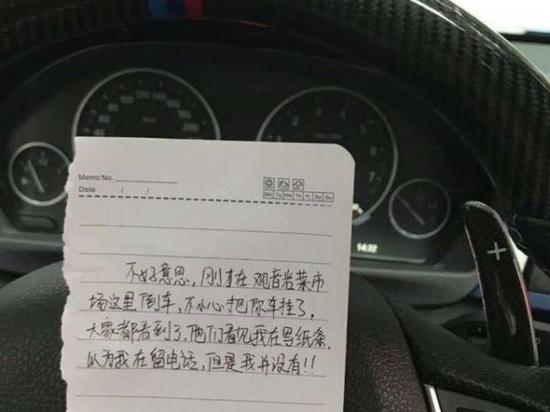 Memo No.
Date / /
Mo Tu We Th Fr Sa Su
不好意思,刚才在观音岩菜市
场这里倒车,不小心把你车挂了,
大家都看到了,他们看见我在写纸条,
以为我在留电话,但是我并没有!!
14:32
+